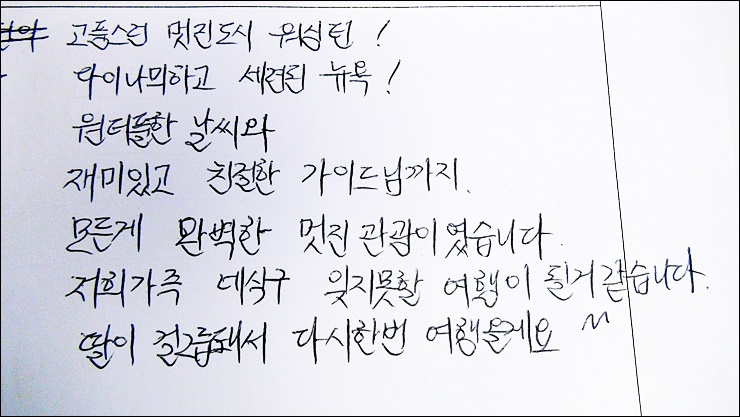 고풍스런 멋진도시 워싱턴 !
다이나믹하고 세련된 뉴욕 !
원더풀한 날씨와
재미있고 친절한 가이드님까지.
모든게 완벽한 멋진 관광이였습니다.
저희가족 네식구 잊지못할 여행이 될거 같습니다.
딸이 걸그룹돼서 다시한번 여행올게요 ^^